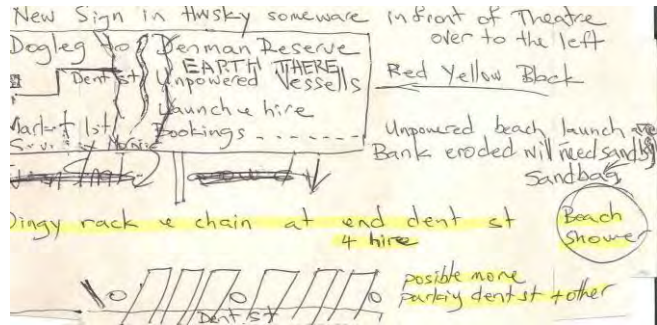 New Sign in Hwsky someware infront of Theatre
over to the left
Dogleg to Denman Reserve
EARTH THERE
Dent st Unpowered Vessells
Red Yellow Black
Launch e hire
Market 1st Bookings
Unpowered beach launch
Bank eroded will need sandbag
Sandbag
Dingy rack e chain at end dent st
4 hire
Beach
Shower
posible more
parkiy dent st + other
Dent st